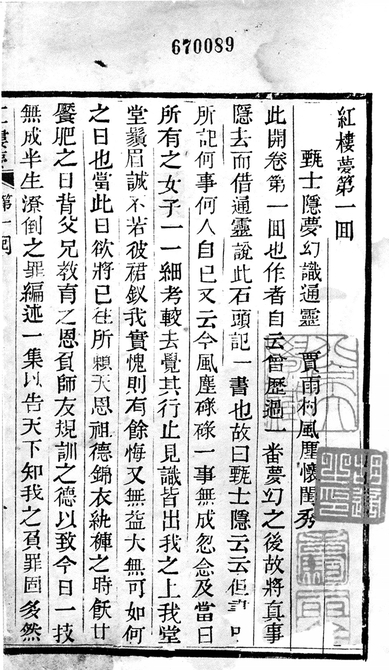 670089
紅樓夢第一囬
甄士隱夢幻識通靈 賈雨村風塵懷閨秀
此開卷第一囬也作者自云曾歷過一番夢幻之後故將真事
隱去而借通靈說此石頭記一書也故曰甄士隱云云但書中
所記何事何人自己又云今風塵碌碌一事無成忽念及當日
所有之女子一一細考較去覺其行止見識皆出我之上我堂
堂鬚眉誠不若彼裙釵我實愧則有餘悔又無益大無可如何
之日也當此日欲將已徃所賴天恩祖德錦衣紈褲之時飫甘
饜肥之日背父兄教育之恩負師友規訓之德以致今日一技
無成半生潦倒之罪編述一集以告天下知我之負罪固多然
紅樓夢 第一囘